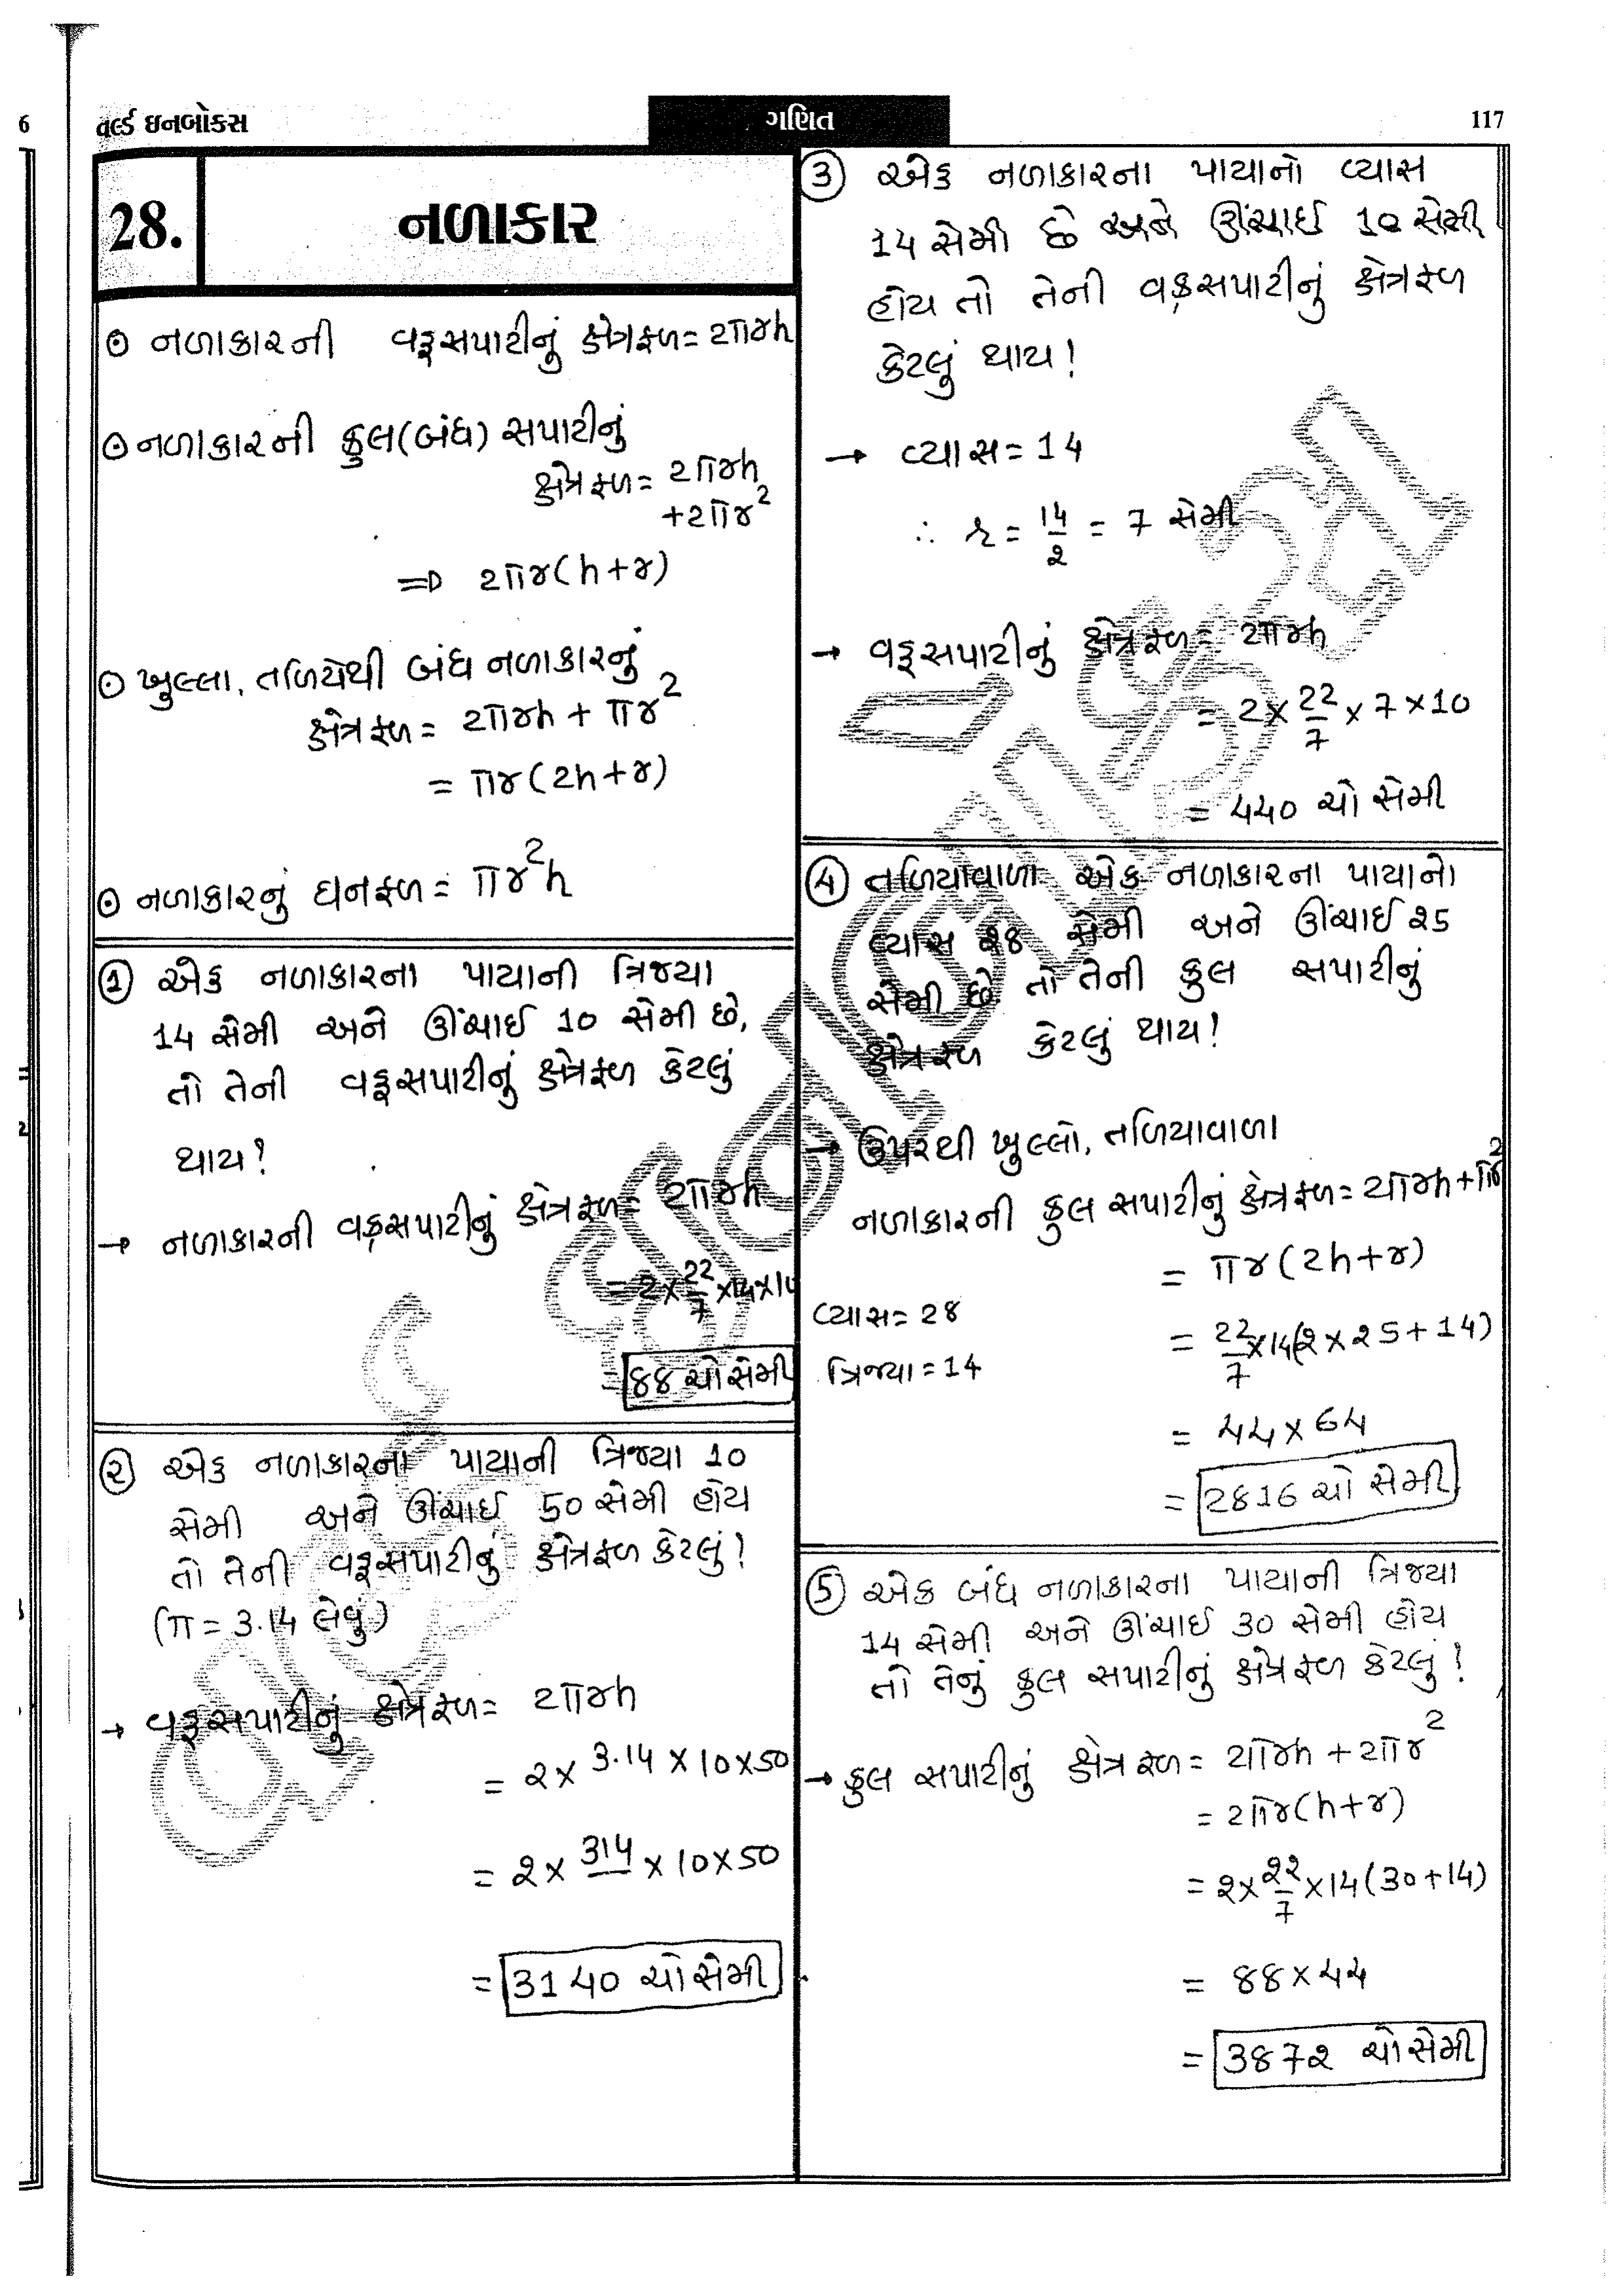 6
વર્લ્ડ ઇનબોક્સ
ગણિત
117
28.
નળાકાર
⊙ નળાકારની વક્રસપાટીનું ક્ષેત્રફળ = 2πrh
⊙ નળાકારની કુલ(બંધ) સપાટીનું
ક્ષેત્રફળ = 2πrh
+2πr²
⇒ 2πr(h+r)
⊙ ખુલ્લા, તળિયેથી બંધ નળાકારનું
ક્ષેત્રફળ = 2πrh + πr²
= πr(2h+r)
⊙ નળાકારનું ઘનફળ = πr²h
① એક નળાકારના પાયાની ત્રિજ્યા
14 સેમી અને ઊંચાઈ 10 સેમી છે,
તો તેની વક્રસપાટીનું ક્ષેત્રફળ કેટલું
થાય?
→ નળાકારની વક્રસપાટીનું ક્ષેત્રફળ = 2πrh
= 2×22/7×14×10
= 88 ચોસેમી
② એક નળાકારના પાયાની ત્રિજ્યા 10
સેમી અને ઊંચાઈ 50 સેમી હોય
તો તેની વક્રસપાટીનું ક્ષેત્રફળ કેટલું?
(π = 3.14 લેવું)
→ વક્રસપાટીનું ક્ષેત્રફળ = 2πrh
= 2× 3.14 × 10×50
= 2× 314 × 10×50
= 3140 ચોસેમી
③ એક નળાકારના પાયાનો વ્યાસ
14 સેમી છે અને ઊંચાઈ 10 સેમી
હોય તો તેની વક્રસપાટીનું ક્ષેત્રફળ
કેટલું થાય?
→ વ્યાસ = 14
∴ r = 14/2 = 7 સેમી
→ વક્રસપાટીનું ક્ષેત્રફળ = 2πrh
= 2× 22/7 × 7 ×10
= 440 ચો સેમી
④ તળિયાવાળા એક નળાકારના પાયાનો
વ્યાસ 28 સેમી અને ઊંચાઈ 25
સેમી છે તો તેની કુલ સપાટીનું
ક્ષેત્રફળ કેટલું થાય?
→ ઉપરથી ખુલ્લો, તળિયાવાળા
નળાકારની કુલ સપાટીનું ક્ષેત્રફળ = 2πrh+πr²
= πr(2h+r)
વ્યાસ = 28
= 22/7×14(2×25+14)
ત્રિજ્યા = 14
= 44×64
= 2816 ચો સેમી
⑤ એક બંધ નળાકારના પાયાની ત્રિજ્યા
14 સેમી અને ઊંચાઈ 30 સેમી હોય
તો તેનું કુલ સપાટીનું ક્ષેત્રફળ કેટલું?
→ કુલ સપાટીનું ક્ષેત્રફળ = 2πrh + 2πr²
= 2πr(h+r)
= 2×22/7×14(30+14)
= 88×44
= 3872 ચોસેમી